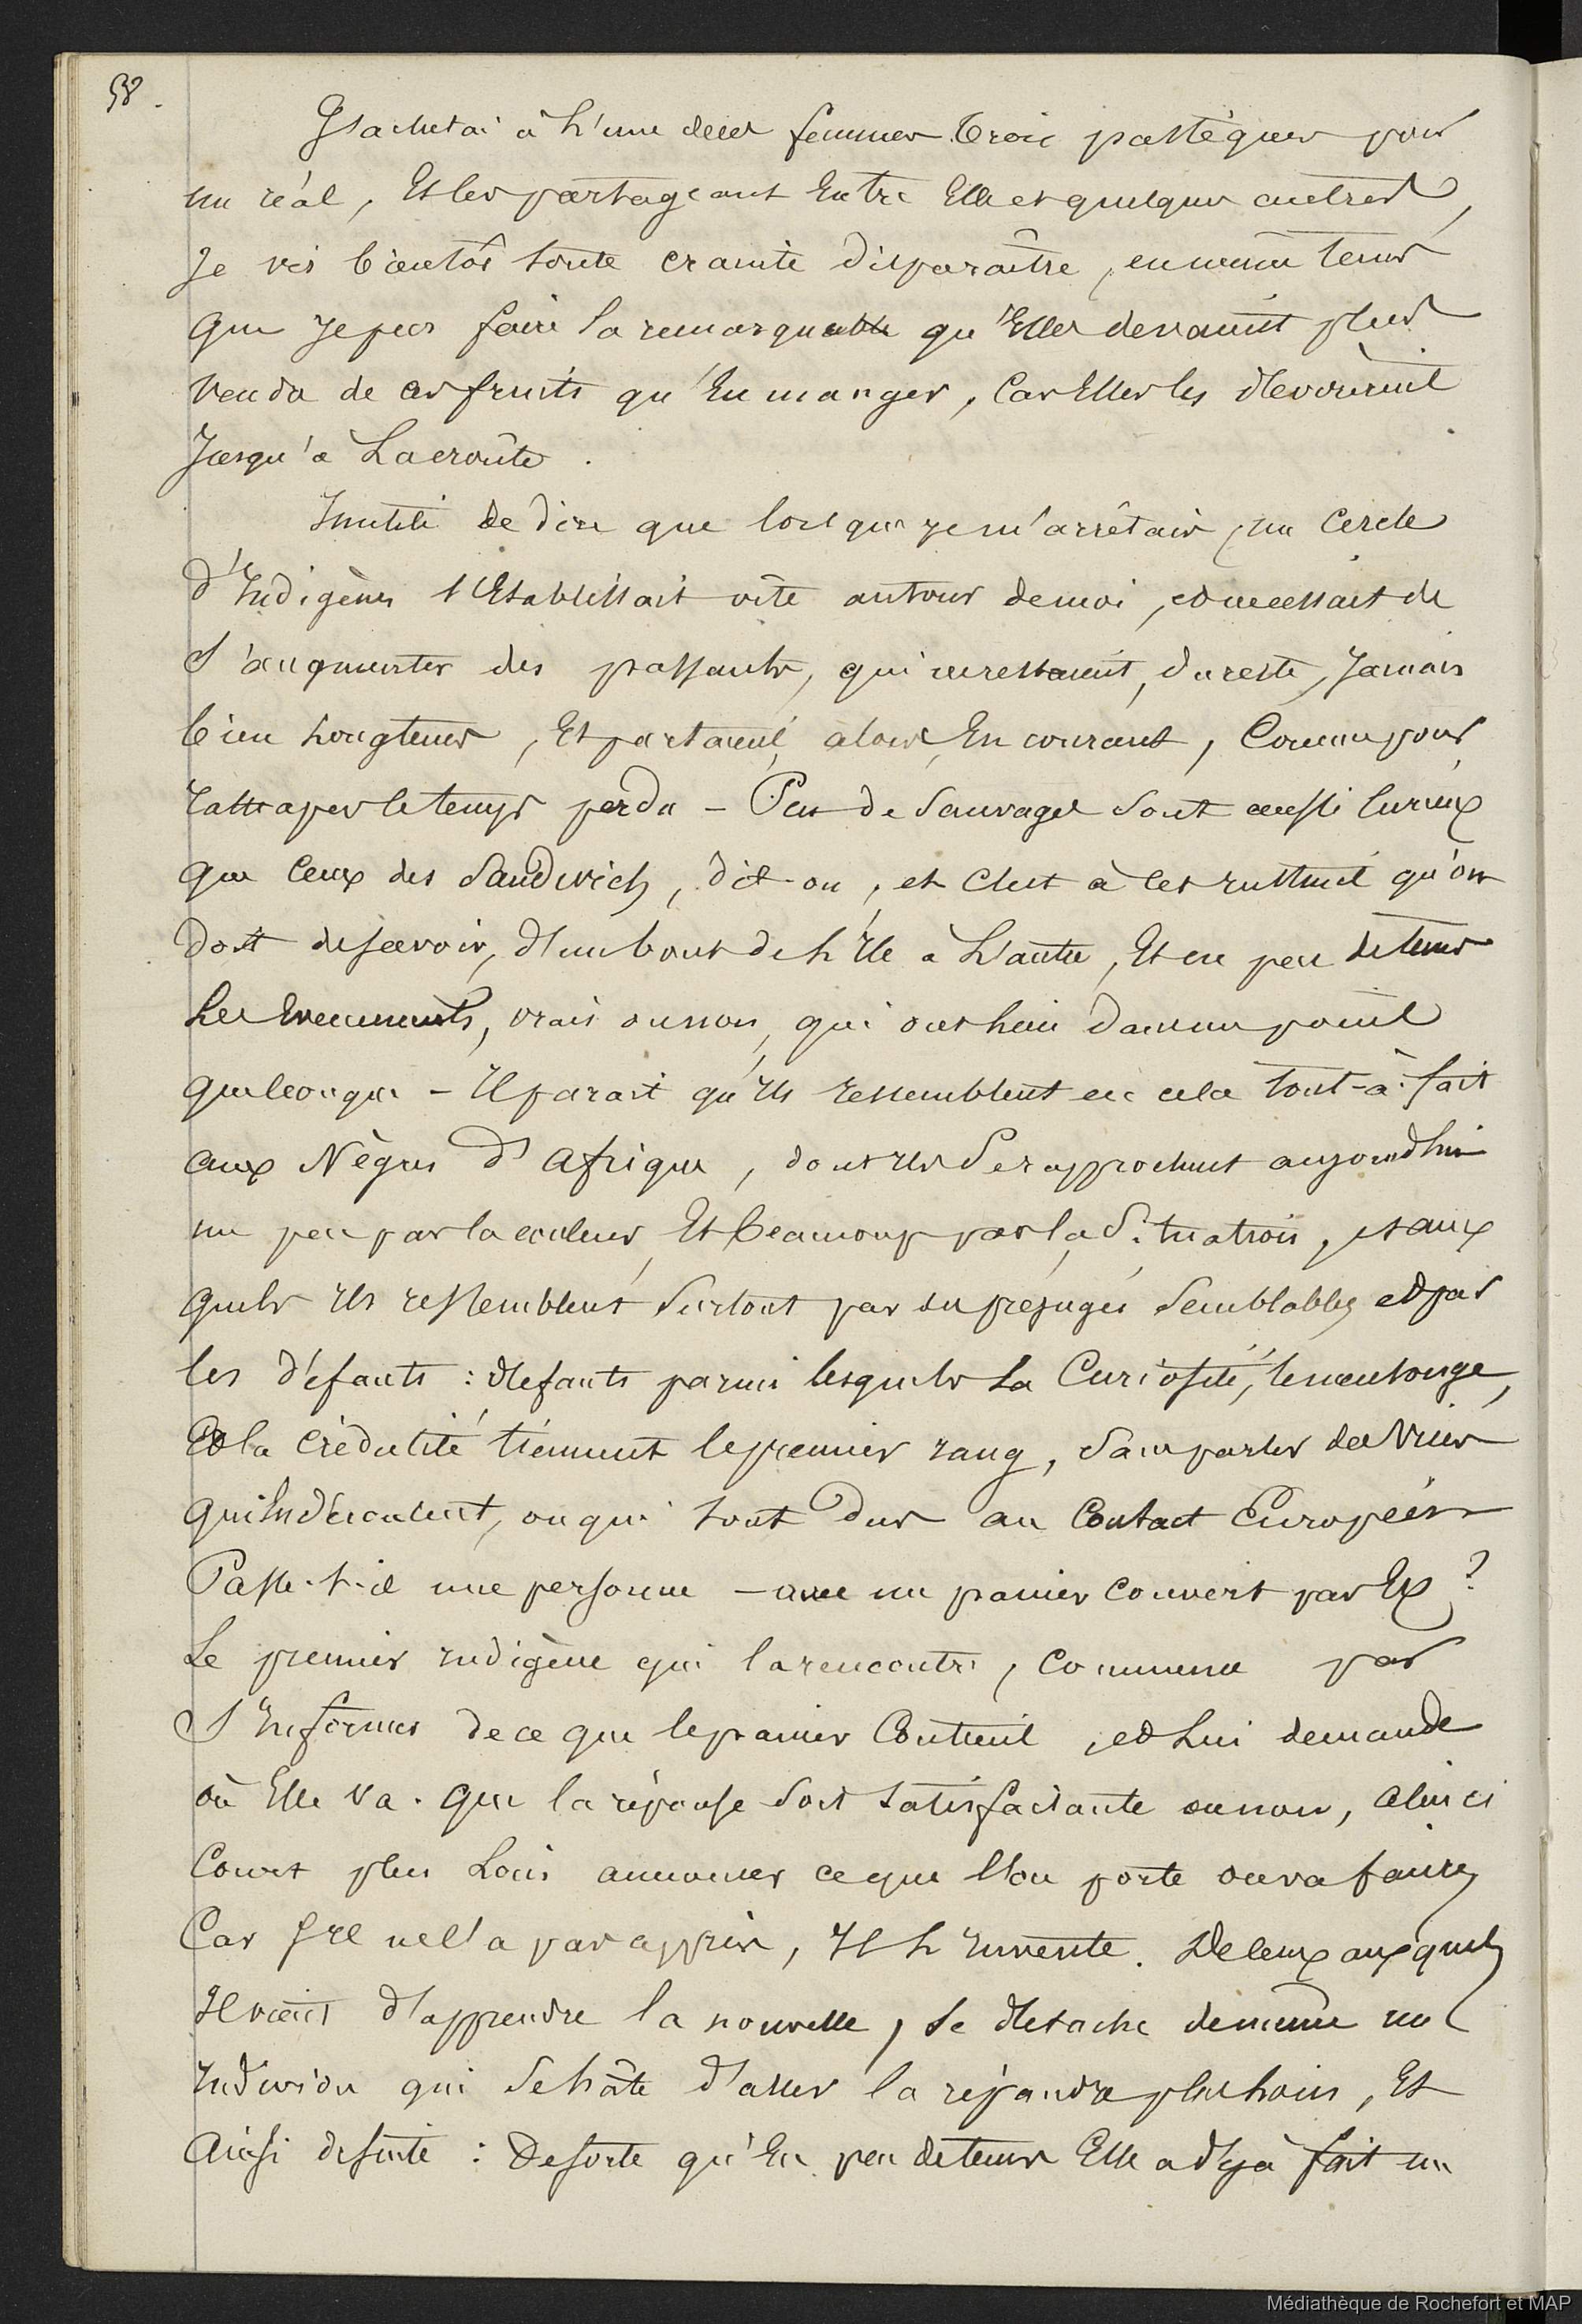 58.
J'achetai à L'une deces femmes trois pastèques pour
un réal, Et les partageant Entre Elle et quelques autres,
Je vis bientôt toute crainte disparaître, en même tems
que Je pus faire la remarque qu'Elles devaient plus
vendu de ces fruits qu'En manger, Car Elles les dévorèrent
Jusqu'à La croûte.
Inutile de dire que lorsque je m'arrêtais, un Cercle
d'Indigènes s'Etablissait vite autour de moi, et ne cessait de
s'augmenter des passants, qui ne restaient, du reste, Jamais
bien Longtems, Et partaient alors En courant, Comme pour
rattraper le temps perdu – Peu de Sauvages sont aussi Curieux
que Ceux des Sandwich, dit-on, et C'est à cet instinct qu'on
doit de savoir, d'un bout de L'Ile à L'autre, Et en peu de tems
Les Evenements, vrais ou non, qui ont Lieu dans un point
quelconque – Il parait qu'Ils ressemblent en cela tout-à-fait
aux Nègres d'Afrique, dont Ils se rapprochent aujourd'hui
un peu par la couleur Et beaucoup par la Situation, et aux
quels Ils ressemblent Surtout par des préjugés Semblables et par
les défauts : défauts parmi lesquels La Curiosité, le mensonge,
Et la crédulité tiennent le premier rang, Sans parler des Vices
qui En découlent, ou qui sont dus au Contact Européen
Passe-t-il une personne – avec un panier Couvert par Ex ?
Le premier indigène qui la rencontre, Commence par
s'Informer de ce que le panier Contient, et Lui demande
où Elle va. Que la réponse Soit Satisfaisante ou non, Celui ci
Court plus Loin annoncer ce que l'on porte ou va faire,
Car s'Il ne l'a pas appris, Il L'Invente. De Ceux auxquels
Il vient d'apprendre la nouvelle, se détache de même un
Individu qui Se hâte d'aller la répandre plus Loin, Et
Ainsi de suite : De sorte qu'En peu de tems Elle a déjà fait un
Médiathèque de Rochefort et MAP